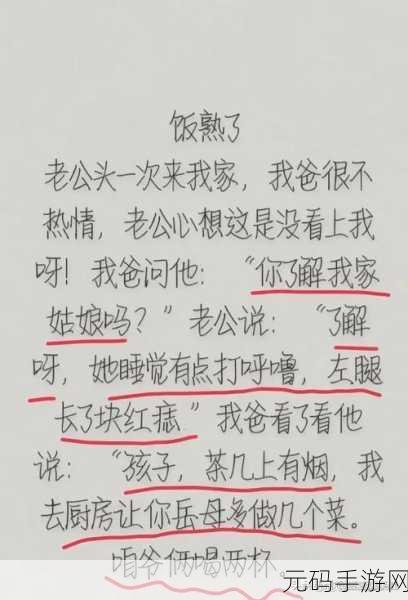 饭熟了
老公头一次来我家，我爸很不
热情，老公心想这是没看上我
呀！我爸问他：“你了解我家
姑娘吗？”老公说：“了解
呀，她睡觉有点打呼噜，左腿
长了块红痣。”我爸看了看他
说：“孩子，茶几上有烟，我
去厨房让你岳母多做几个菜。
咱爷俩喝两杯。
元码手游网